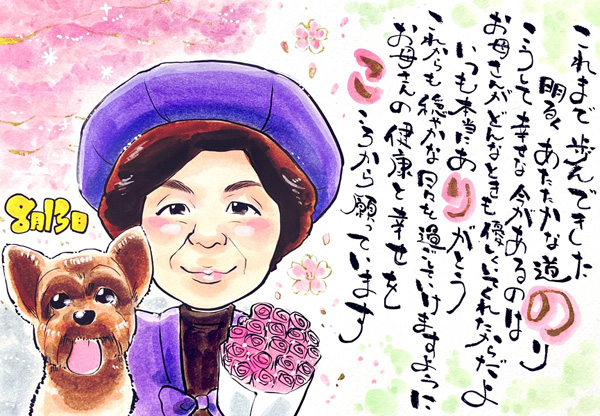 これまで歩んできした
明るく あたたかな道のり
こうして幸せな今があるのは
お母さんがどんなときも優しくいてくれたからだよ
いつも本当にありがとう
これからも穏やかな日々を過ごしていけますように
お母さんの健康と幸せを
こころから願っています
8月13日